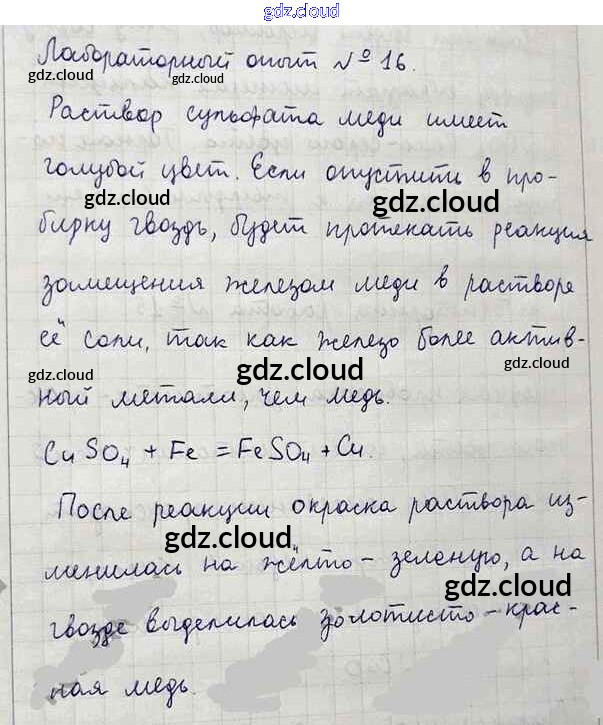 gdz.cloud
Лабораторный опыт № 16.
gdz.cloud
gdz.cloud
Раствор сульфата меди имеет
голубой цвет. Если опустить в про-
gdz.cloud
gdz.cloud
бирку гвоздь, будет протекать реакция
замещения железом меди в растворе
её соли, так как железо более актив-
gdz.cloud
gdz.cloud
gdz.cloud
ный металл, чем медь.
CuSO4 + Fe = FeSO4 + Cu.
После реакции окраска раствора из-
gdz.cloud
менилась на жёлто-зеленую, а на
gdz.cloud
гвозде выделилась золотисто-крас-
gdz.cloud
ная медь.